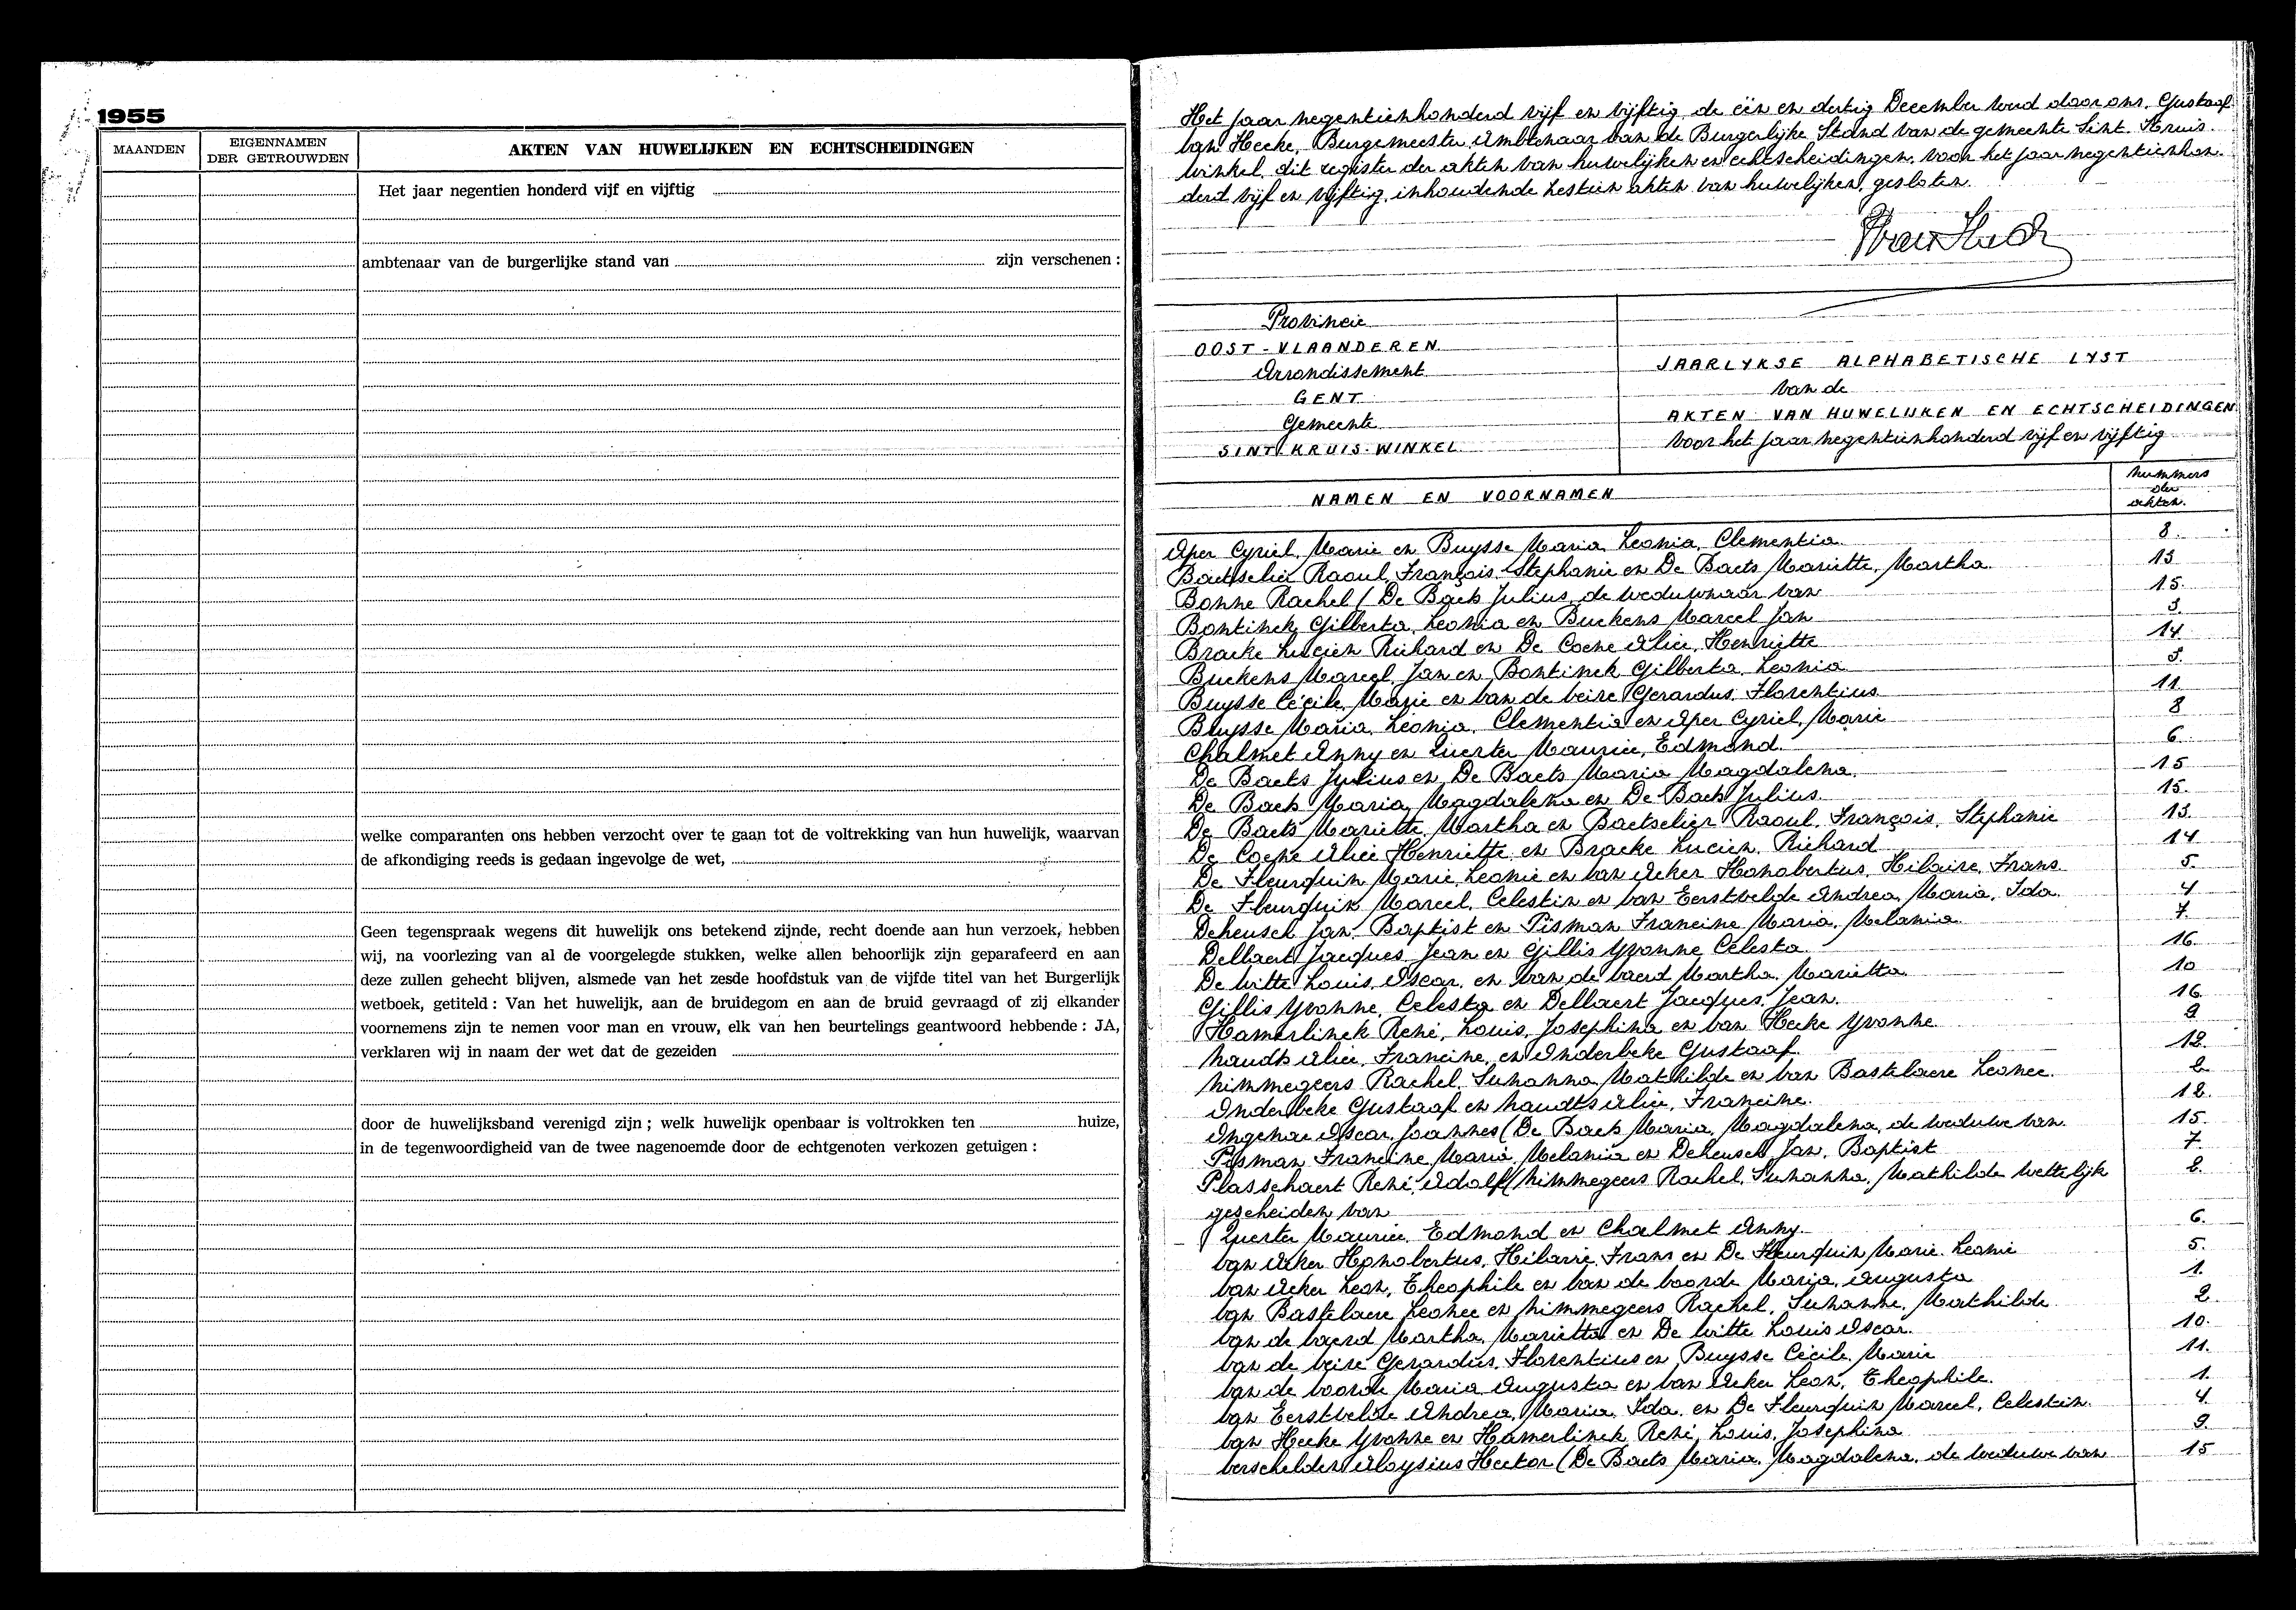 1955
MAANDEN
EIGENNAMEN
DER GETROUWDEN
AKTEN VAN HUWELIJKEN EN ECHTSCHEIDINGEN
Het jaar negentien honderd vijf en vijftig
ambtenaar van de burgerlijke stand van zijn verschenen :
welke comparanten ons hebben verzocht over te gaan tot de voltrekking van hun huwelijk, waarvan
de afkondiging reeds is gedaan ingevolge de wet,
Geen tegenspraak wegens dit huwelijk ons betekend zijnde, recht doende aan hun verzoek, hebben
wij, na voorlezing van al de voorgelegde stukken, welke allen behoorlijk zijn geparafeerd en aan
deze zullen gehecht blijven, alsmede van het zesde hoofdstuk van de vijfde titel van het Burgerlijk
wetboek, getiteld : Van het huwelijk, aan de bruidegom en aan de bruid gevraagd of zij elkander
voornemens zijn te nemen voor man en vrouw, elk van hen beurtelings geantwoord hebbende : JA,
verklaren wij in naam der wet dat de gezeiden
door de huwelijksband verenigd zijn ; welk huwelijk openbaar is voltrokken ten huize,
in de tegenwoordigheid van de twee nagenoemde door de echtgenoten verkozen getuigen :
Het jaar negentienhonderd vijf en vijftig, de één en dertig December werd door ons, Gustaaf
Van Hecke, Burgemeester Ambtenaar van de Burgerlijke Stand van de gemeente Sint-Kruis-
Winkel, dit register der akten van huwelijken en echtscheidingen, voor het jaar negentienhon-
derd vijf en vijftig, inhoudende zestien akten van huwelijken, gesloten.
Provincie
OOST-VLAANDEREN
Arrondissement
GENT
Gemeente
SINT-KRUIS-WINKEL
JAARLYKSE ALPHABETISCHE LYST
van de
AKTEN VAN HUWELIJKEN EN ECHTSCHEIDINGEN
voor het jaar negentienhonderd vijf en vijftig
NAMEN EN VOORNAMEN
Nummers
der
akten.
Aper Cyriel, Marie en Buysse Maria, Leonia, Clementia 8.
Baetselier Raoul, François, Stephanie en De Baets Mariette, Martha. 13
Bonne Rachel (De Baets Julius, de weduwnaar van 15.
Bontinck Gilberta, Leonia en Buckens Marcel Jan 3.
Braeke Lucien Richard en De Coene Alice, Henriette 14.
Buckens Marcel, Jan en Bontinck Gilberta, Leonia 3.
Buysse Cécile, Marie en Van de Veire Gerardus, Florentius 11.
Buysse Maria, Leonia, Clementia en Aper Cyriel, Marie 8
Chalmet Anny en Quester Maurice, Edmond. 6.
De Baets Julius en De Baets Maria Magdalena. 15
De Baets Maria, Magdalena en De Baets Julius. 15.
De Baets Mariette, Martha en Baetselier Raoul, François, Stephanie 13.
De Coene Alice Henriette en Braeke Lucien, Richard 14
De Fleurquin Marie, Leonie en Van Acker Honobertus, Hilaire, Frans. 5.
De Fleurquin Marcel, Celestin en Van Eerstvelde Andrea, Maria, Ida. 4
Deheusch Jan, Baptist en Pisman Francine, Maria, Melania. 7.
Dellaert Jacques Jean en Gillis Yvonne Celesta 16.
De Witte Louis, Oscar, en Van de Vaerd Martha, Marietta 10
Gillis Yvonne, Celesta en Dellaert Jacques, Jean. 16.
Hamerlinck René, Louis, Josephina en Van Hecke Yvonne. 9
Naudts Alice, Francine, en Onderbeke Gustaaf. 12.
Nimmegeers Rachel, Suzanna, Mathilde en Van Bastelaere Leonce. 2
Onderbeke Gustaaf en Naudts Alice, Francine. 12.
Ongenae Oscar, Joannes (De Baets Maria, Magdalena, de weduwe van 15.
Pisman Francine Maria, Melania en Deheusch Jan, Baptist 7.
Plasschaert René, Adolf (Nimmegeers Rachel, Suzanna, Mathilde wettelijk 2.
gescheiden van
Quester Maurice, Edmond en Chalmet Anny 6.
Van Acker Honobertus, Hilarie, Frans en De Fleurquin Marie, Leonie 5.
Van Acker Leon, Theophile en Van de Voorde Maria, Augusta 1.
Van Bastelaere Leonce en Nimmegeers Rachel, Suzanne, Mathilde 2.
Van de Vaerd Martha, Marietta en De Witte Louis Oscar. 10.
Van de Veire Gerardus, Florentius en Buysse Cécile, Marie 11.
Van de Voorde Maria Augusta en Van Acker Leon, Theophile. 1.
Van Eerstvelde Andrea, Maria, Ida, en De Fleurquin Marcel, Celestin. 4.
Van Hecke Yvonne en Hamerlinck René, Louis, Josephina 9.
Verschelden Aloysius Hector (De Baets Maria, Magdalena, de weduwe van 15